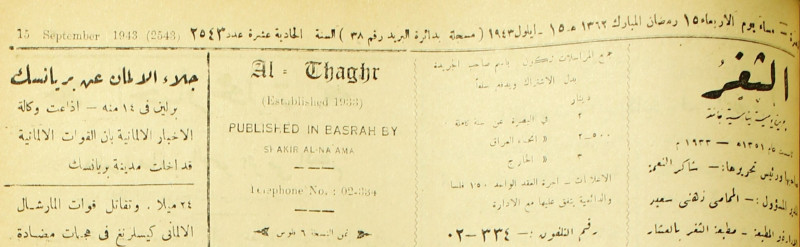 مساء يوم الاربعاء ١٥ رمضان المبارك ١٣٦٢ هـ - ١٥ ايلول ١٩٤٣ ( مسجلة بدائرة البريد رقم ٣٨ ) السنة الحادية عشرة عدد ٢٥٤٣
15 September 1943 (2543)
الثغر
جريدة يومية سياسية جامعة
١٣٥١ هـ — ١٩٣٣ م
ورئيس تحريرها :— شاكر النعمة
المسؤول :— المحامي زهني سعيد
الطبعة — مطبعة الثغر بالعشار
جميع المراسلات تكون باسم صاحب الجريدة
بدل الاشتراك ويدفع سلفاً
دينار
٢ في البصرة عن سنة كاملة
٢٫٥٠٠ « انحاء العراق
٣ « الخارج
الاعلانات — اجرة العقد الواحد ١٥٠ فلسا
والدائمية يتفق عليها مع الادارة
رقم التلفون :— ٣٣٤-٠٢
Al - Thaghr
(Established 1933)
PUBLISHED IN BASRAH BY
SHAKIR AL-NA'AMA
Telephone No. : 02-334
ثمن النسخة ٦ فلوس
جلاء الالمان عن بريانسك
برلين في ١٤ منه — اذاعت وكالة
الاخبار الالمانية بان القوات الالمانية
قد اخلت مدينة بريانسك
٢٤ ميلا . وتقاتل قوات المارشال
الالماني كيسلرنغ في هجمات مضادة